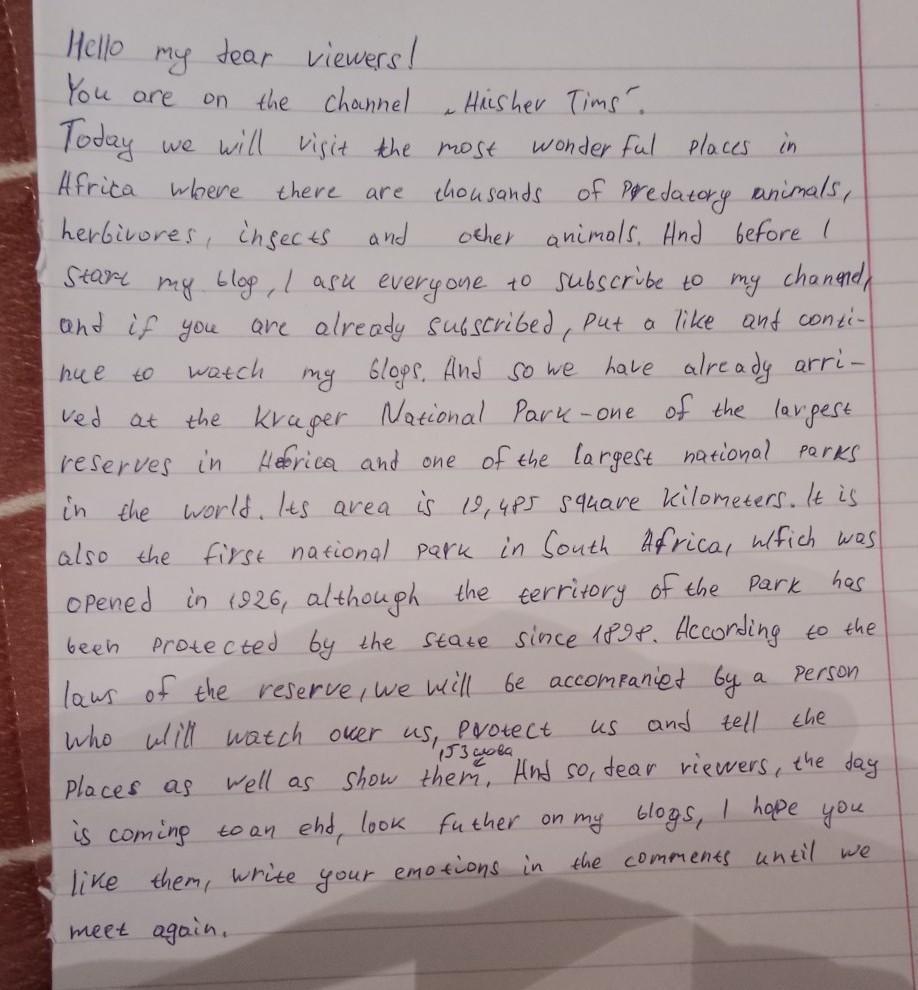 Hello my dear viewers!
You are on the channel „Haisher Tims“.
Today we will visit the most wonderful places in
Africa where there are thousands of predatory animals,
herbivores, insects and other animals. And before I
start my blog, I ask everyone to subscribe to my channel,
and if you are already subscribed, put a like and conti-
nue to watch my blogs. And so we have already arri-
ved at the Kruger National Park - one of the largest
reserves in Africa and one of the largest national parks
in the world. Its area is 19,485 square kilometers. It is
also the first national park in South Africa, which was
opened in 1926, although the territory of the park has
been protected by the state since 1898. According to the
laws of the reserve, we will be accompanied by a person
who will watch over us, protect us and tell the
153 слова
places as well as show them. And so, dear viewers, the day
is coming to an end, look futher on my blogs, I hope you
like them, write your emotions in the comments until we
meet again.